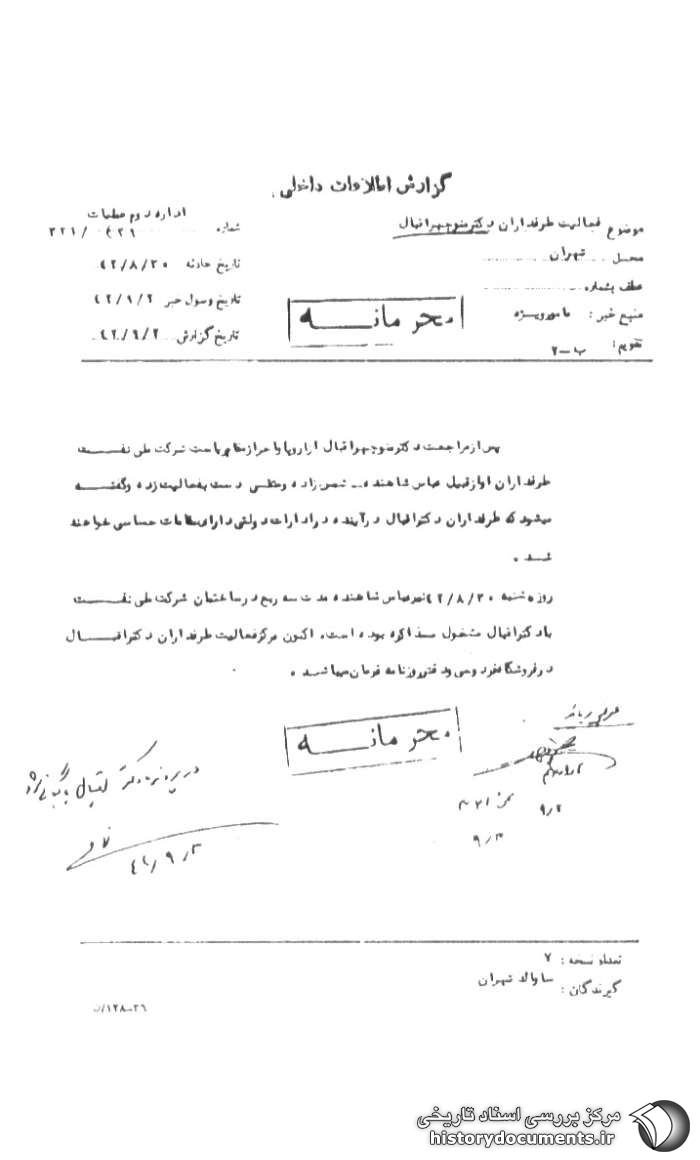 گزارش اطلاعات داخلی
موضوع فعالیت طرفداران دکتر منوچهر اقبال
محل تهران
عطف بشماره
منبع خبر : مامور ویژه
تقویم : ب-۲
اداره دوم عملیات
شماره ۳۲۱/
تاریخ حادثه ۴۲/۸/۳۰
تاریخ وصول خبر ۴۲/۹/۲
تاریخ گزارش ۴۲/۹/۲
محرمانه
پس از مراجعت دکتر منوچهر اقبال از اروپا و احراز مقام ریاست شرکت ملی نفت
طرفداران او از قبیل عباس شاهنده - شمس زاده و دست بفعالیت زده و گفته
میشود که طرفداران دکتر اقبال در آینده در ادارات دولتی دارای مقامات حساسی خواهند
شد .
روز شنبه ۴۲/۸/۳۰ نیز عباس شاهنده مدت سه ربع در ساختمان شرکت ملی نفت
با دکتر اقبال مشغول مذاکره بوده است. اکنون مرکز فعالیت طرفداران دکتر اقبال
در فروشگاه فردوسی و دفتر روزنامه فرمان میباشد .
محرمانه
در پرونده دکتر اقبال بایگانی شود
۴۲/۹/۳
۹/۲
۹/۳
تعداد نسخه : ۷
گیرندگان : ساواک تهران
۱۲۸-۲۶/ن
مرکز بررسی اسناد تاریخی
historydocuments.ir